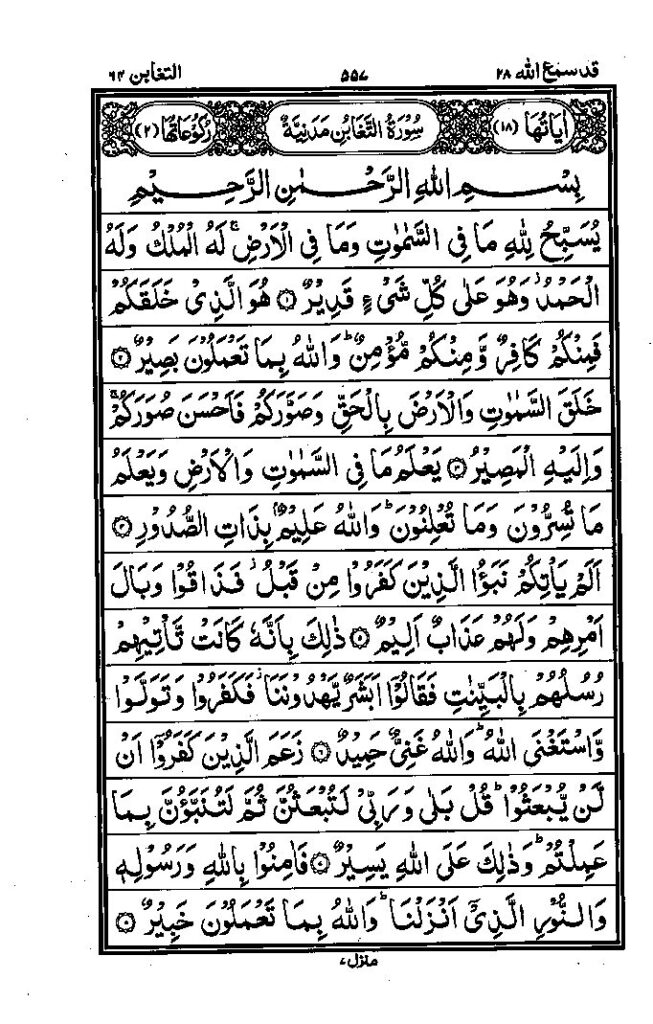 قد سمع الله ۲۸ ۵۵۷ التغابن ۶۴
اٰيَاتُهَا (۱۸) سُوْرَةُ التَّغَابُنِ مَدَنِيَّةٌ رُكُوْعَاتُهَا (۲)
بِسْمِ اللّٰهِ الرَّحْمٰنِ الرَّحِيْمِ
يُسَبِّحُ لِلّٰهِ مَا فِى السَّمٰوٰتِ وَمَا فِى الْاَرْضِ ۚ لَهُ الْمُلْكُ وَلَهُ
الْحَمْدُ ؗ وَهُوَ عَلٰى كُلِّ شَىْءٍ قَدِيْرٌ ۝۱ هُوَ الَّذِىْ خَلَقَكُمْ
فَمِنْكُمْ كَافِرٌ وَّمِنْكُمْ مُّؤْمِنٌ ؕ وَاللّٰهُ بِمَا تَعْمَلُوْنَ بَصِيْرٌ ۝۲
خَلَقَ السَّمٰوٰتِ وَالْاَرْضَ بِالْحَقِّ وَصَوَّرَكُمْ فَاَحْسَنَ صُوَرَكُمْ ۚ
وَاِلَيْهِ الْمَصِيْرُ ۝۳ يَعْلَمُ مَا فِى السَّمٰوٰتِ وَالْاَرْضِ وَيَعْلَمُ
مَا تُسِرُّوْنَ وَمَا تُعْلِنُوْنَ ؕ وَاللّٰهُ عَلِيْمٌۢ بِذَاتِ الصُّدُوْرِ ۝۴
اَلَمْ يَاْتِكُمْ نَبَؤُا الَّذِيْنَ كَفَرُوْا مِنْ قَبْلُ ؗ فَذَاقُوْا وَبَالَ
اَمْرِهِمْ وَلَهُمْ عَذَابٌ اَلِيْمٌ ۝۵ ذٰلِكَ بِاَنَّهٗ كَانَتْ تَّاْتِيْهِمْ
رُسُلُهُمْ بِالْبَيِّنٰتِ فَقَالُوْۤا اَبَشَرٌ يَّهْدُوْنَنَا ؗ فَكَفَرُوْا وَتَوَلَّوْا
وَّاسْتَغْنَى اللّٰهُ ؕ وَاللّٰهُ غَنِىٌّ حَمِيْدٌ ۝۶ زَعَمَ الَّذِيْنَ كَفَرُوْۤا اَنْ
لَّنْ يُّبْعَثُوْا ؕ قُلْ بَلٰى وَرَبِّىْ لَتُبْعَثُنَّ ثُمَّ لَتُنَبَّؤُنَّ بِمَا
عَمِلْتُمْ ؕ وَذٰلِكَ عَلَى اللّٰهِ يَسِيْرٌ ۝۷ فَاٰمِنُوْا بِاللّٰهِ وَرَسُوْلِهٖ
وَالنُّوْرِ الَّذِىْۤ اَنْزَلْنَا ؕ وَاللّٰهُ بِمَا تَعْمَلُوْنَ خَبِيْرٌ ۝۸
منزل ۷